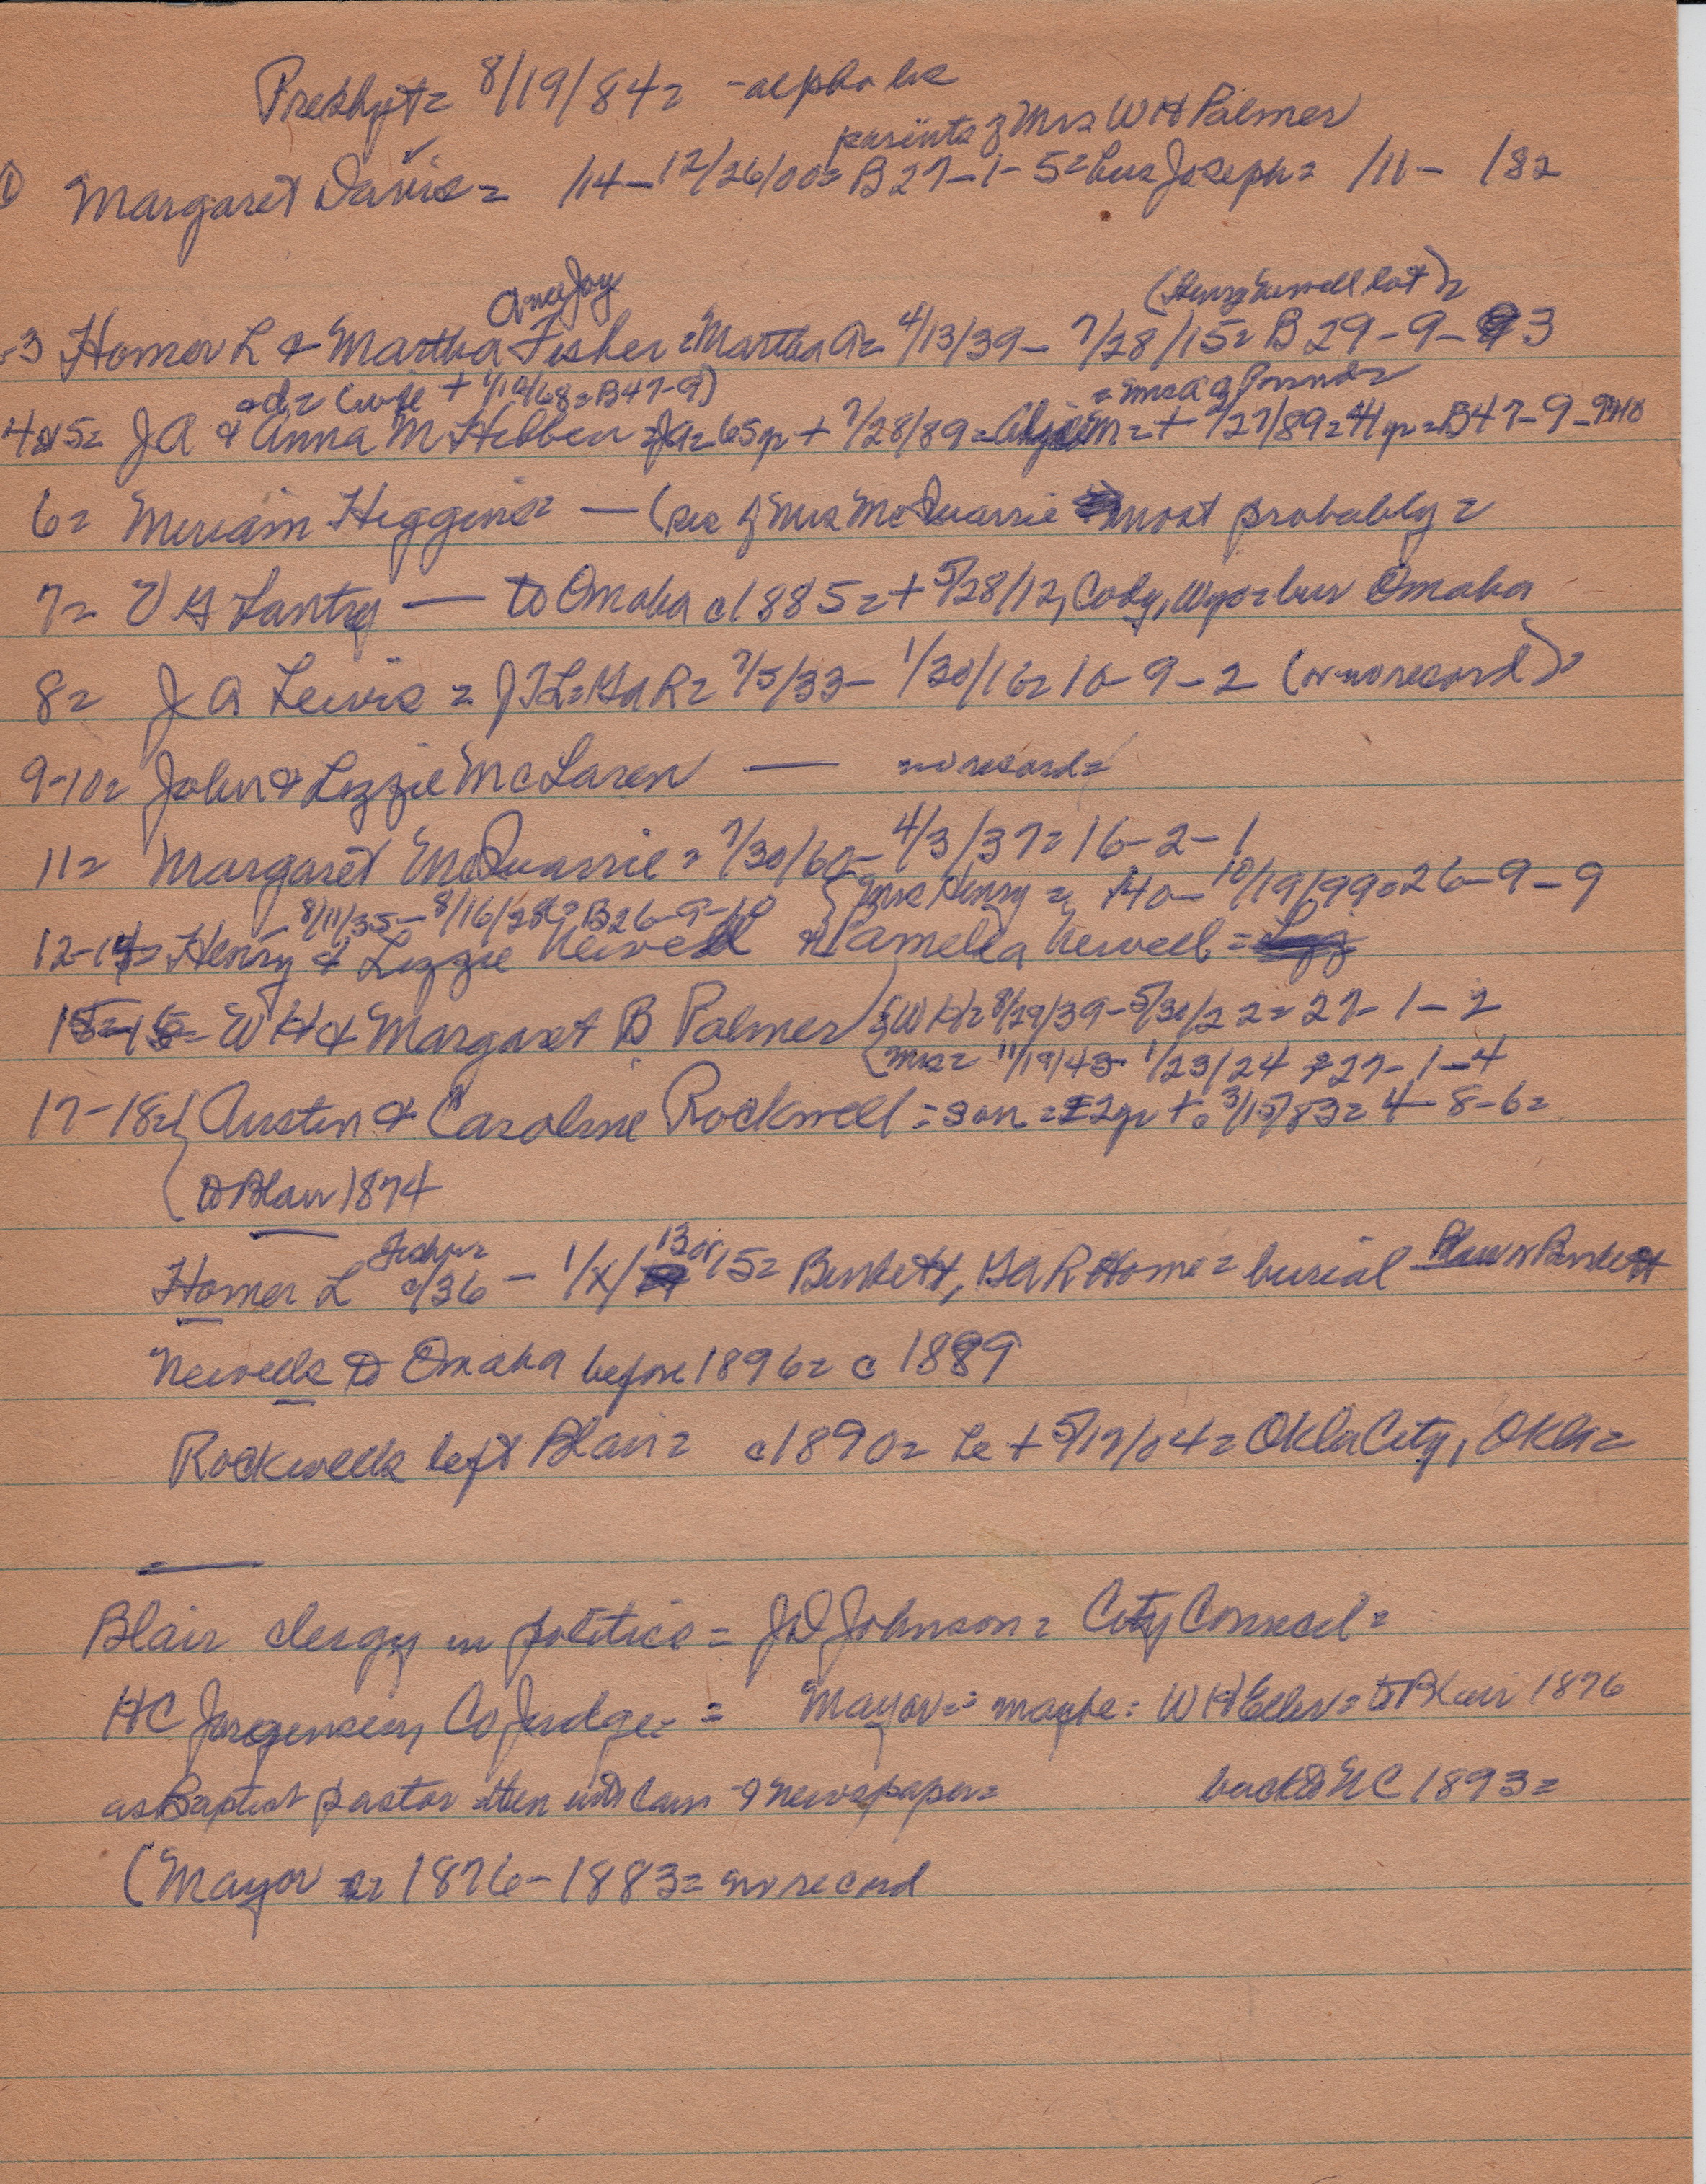 Presbyt= 8/19/84= -alpha
parents of Mrs W H Palmer
① Margaret Davis= /14-12/26/00= B27-1-5= hus Joseph= /11- /82
(Henry Newell lot)=
3 Homer L & Martha Fisher = Martha A= 4/13/39- 7/28/15= B 29-9-3
(wife + 1/10/68=B47-9)
= Mrs A
4&5= J A & Anna M Hibben = JA=65yr + 7/28/89= M=+ /27/89=41yr=B47-9-9&10
6= Miriam Higgins - (sis of Mrs McQuarrie most probably=
7= V G Lantry - to Omaha c1885=+ 5/28/12, Cody, Wyo= bur Omaha
8= J A Lewis = J T L=GAR= 7/5/33- 1/30/16= 10-9-2 (or no record)=
9-10= John & Lizzie McLaren - no record=
11= Margaret McQuarrie = 7/30/60- 4/3/37= 16-2-1
8/11/35-8/16/28= B26-9-10 { Mrs Henry = /40-10/19/99=26-9-9
12-14= Henry & Lizzie Newell & Pamelia Newell =
15-16= W H & Margaret B Palmer { W H= 8/29/39-5/30/22= 27-1-2
(Mrs= 11/19/43- 1/23/24 = 27-1-4
17-18= { Austin & Caroline Rockwell = son = 22yr +. 3/15/83= 4-8-6=
{ to Blair 1874
Fisher= 13 or
Homer L c/36 - 1/X/ 15= Burkett, GAR Home= burial Blair or Burkett
Newells to Omaha before 1896= c 1889
Rockwells left Blair= c1890= he + 5/17/04= Okla City, Okla=
Blair clergy in politics = J D Johnson= City Council=
HC Jorgensen, Co Judge- = Mayor= maybe= W H Eller= to Blair 1876
as Baptist pastor then into law & newspaper= back to NC 1893=
(Mayor = 1876-1883= no record